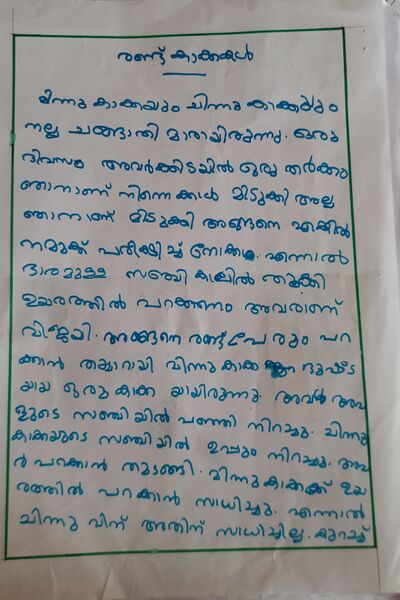 രണ്ട് കാക്കകൾ
മിന്നു കാക്കയും ചിന്നു കാക്കയും
നല്ല ചങ്ങാതി മാരായിരുന്നു. ഒരു
ദിവസം അവർക്കിടയിൽ ഒരു തർക്കം
ഞാനാണ് നിന്നെക്കാൾ മിടുക്കി അല്ല
ഞാനാണ് മിടുക്കി അങ്ങനെ എങ്കിൽ
നമുക്ക് പരീക്ഷിച്ച് നോക്കാം. എന്നാൽ
ഭാരമുള്ള സഞ്ചി കാലിൽ തൂക്കി
ഉയരത്തിൽ പറക്കണം അവരാണ്
വിജയി. അങ്ങനെ രണ്ട്പേരും പറ
ക്കാൻ തയ്യാറായി മിന്നുകാക്ക ദുഷ്ട
യായ ഒരു കാക്ക യായിരുന്നു. അവൾ അവ
ളുടെ സഞ്ചിയിൽ പഞ്ഞി നിറച്ചു. ചിന്നു
കാക്കയുടെ സഞ്ചിയിൽ ഉപ്പും നിറച്ചു. അവ
ർ പറക്കാൻ തുടങ്ങി. മിന്നുകാക്കക്ക് ഉയ
രത്തിൽ പറക്കാൻ സാധിച്ചു. എന്നാൽ
ചിന്നു വിന് അതിന് സാധിച്ചില്ല. കുറച്ച്